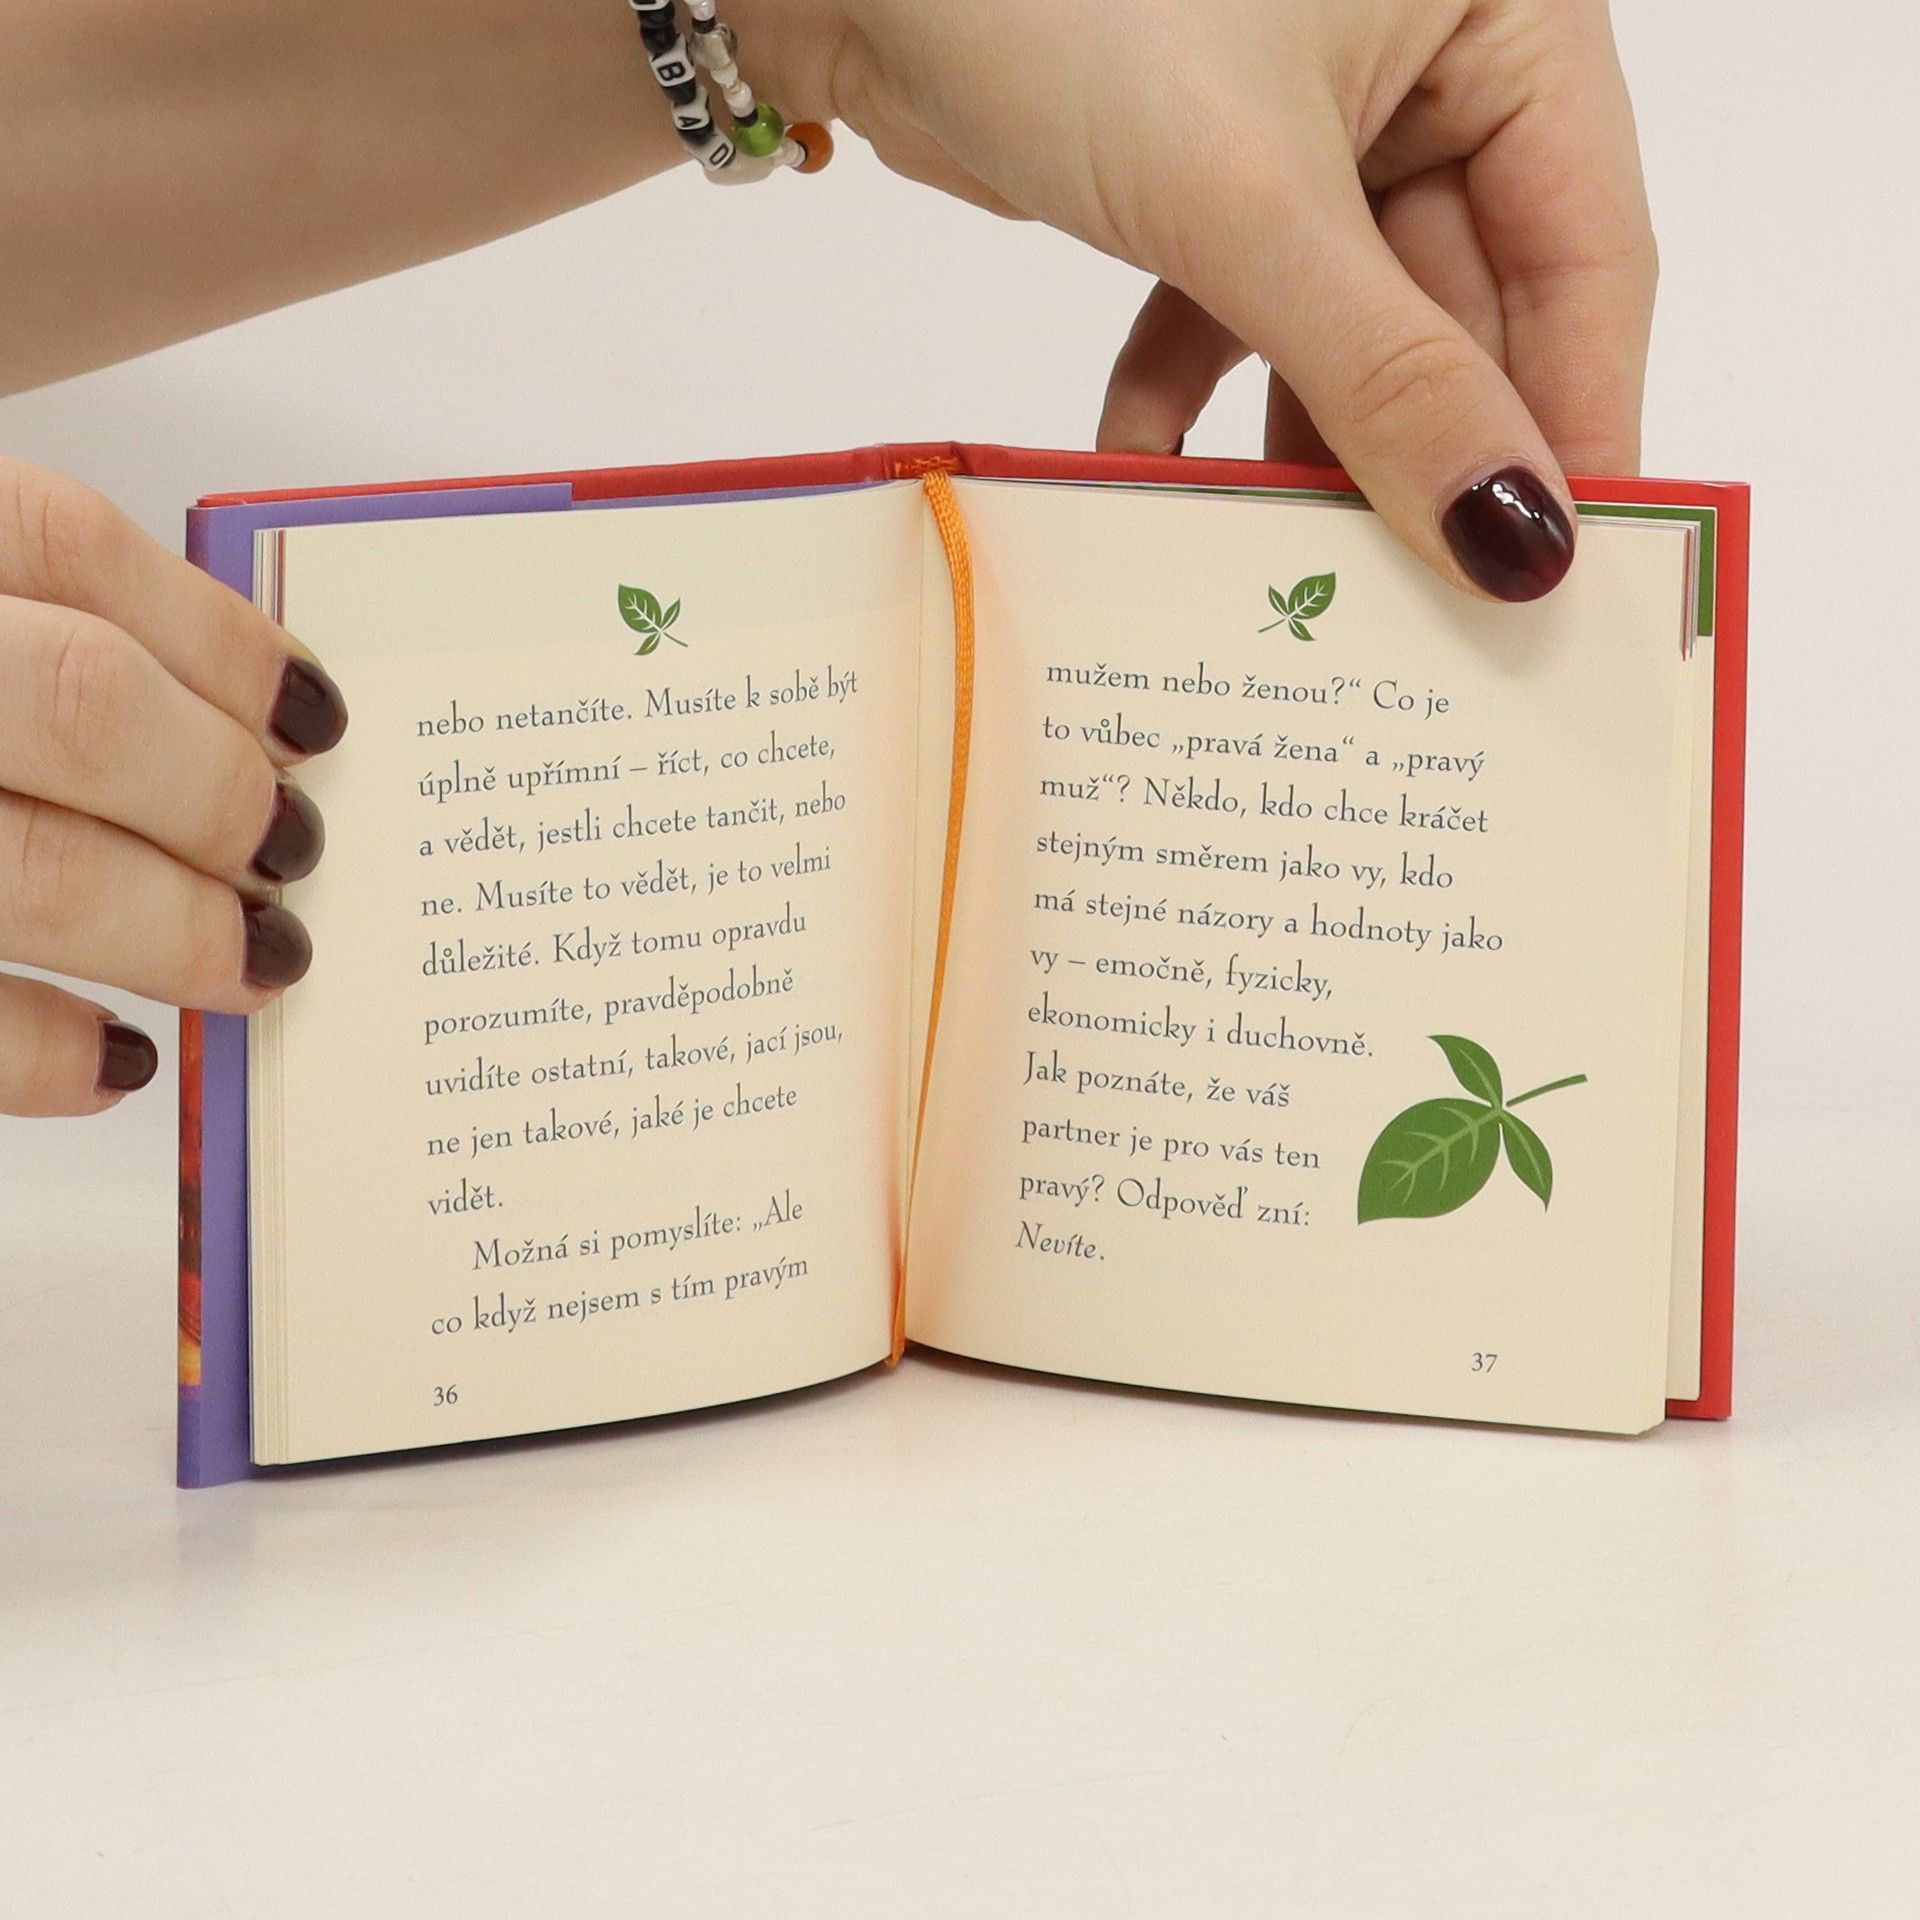 BAD
nebo netančíte. Musíte k sobě být
úplně upřímní – říct, co chcete,
a vědět, jestli chcete tančit, nebo
ne. Musíte to vědět, je to velmi
důležité. Když tomu opravdu
porozumíte, pravděpodobně
uvidíte ostatní, takové, jací jsou,
ne jen takové, jaké je chcete
vidět.
Možná si pomyslíte: „Ale
co když nejsem s tím pravým
36
mužem nebo ženou?“ Co je
to vůbec „pravá žena“ a „pravý
muž“? Někdo, kdo chce kráčet
stejným směrem jako vy, kdo
má stejné názory a hodnoty jako
vy – emočně, fyzicky,
ekonomicky i duchovně.
Jak poznáte, že váš
partner je pro vás ten
pravý? Odpověď zní:
Nevíte.
37